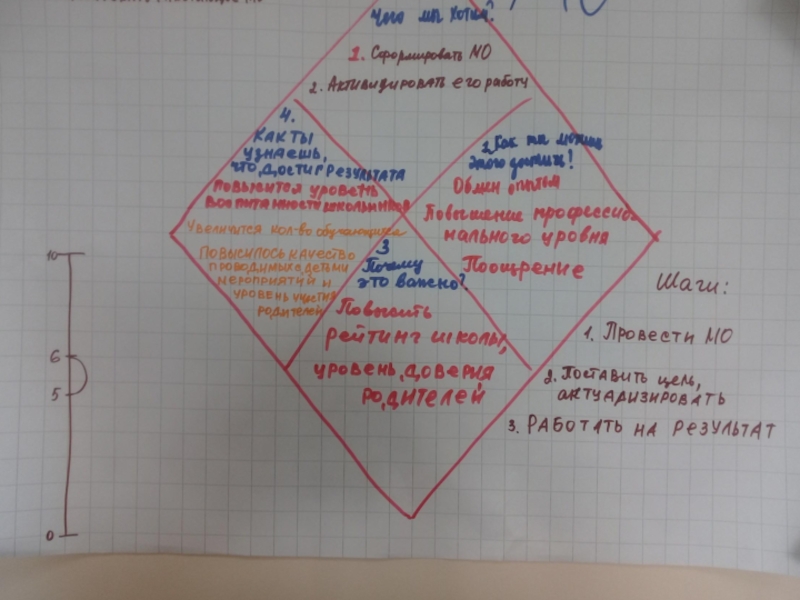 Чего мы хотим?
1. Сформировать МО
2. Активидировать его работу
4.
Как ты
узнаешь,
что достиг результата
Повысится уровень
воспитанности школьников
Увеличится кол-во обучающихся
Повысилось качество
проводимых с детьми
мероприятий и
уровень участия
родителей
2. Как ты можешь
этого достичь!
Обмен опытом
Повышение профессио
нального уровня
Поощрение
3
Почему
это важно?
Повысить
рейтинг школы,
уровень доверия
родителей
Шаги:
1. Провести МО
2. Поставить цель,
актуализировать
3. Работать на результат
10
6
5
0